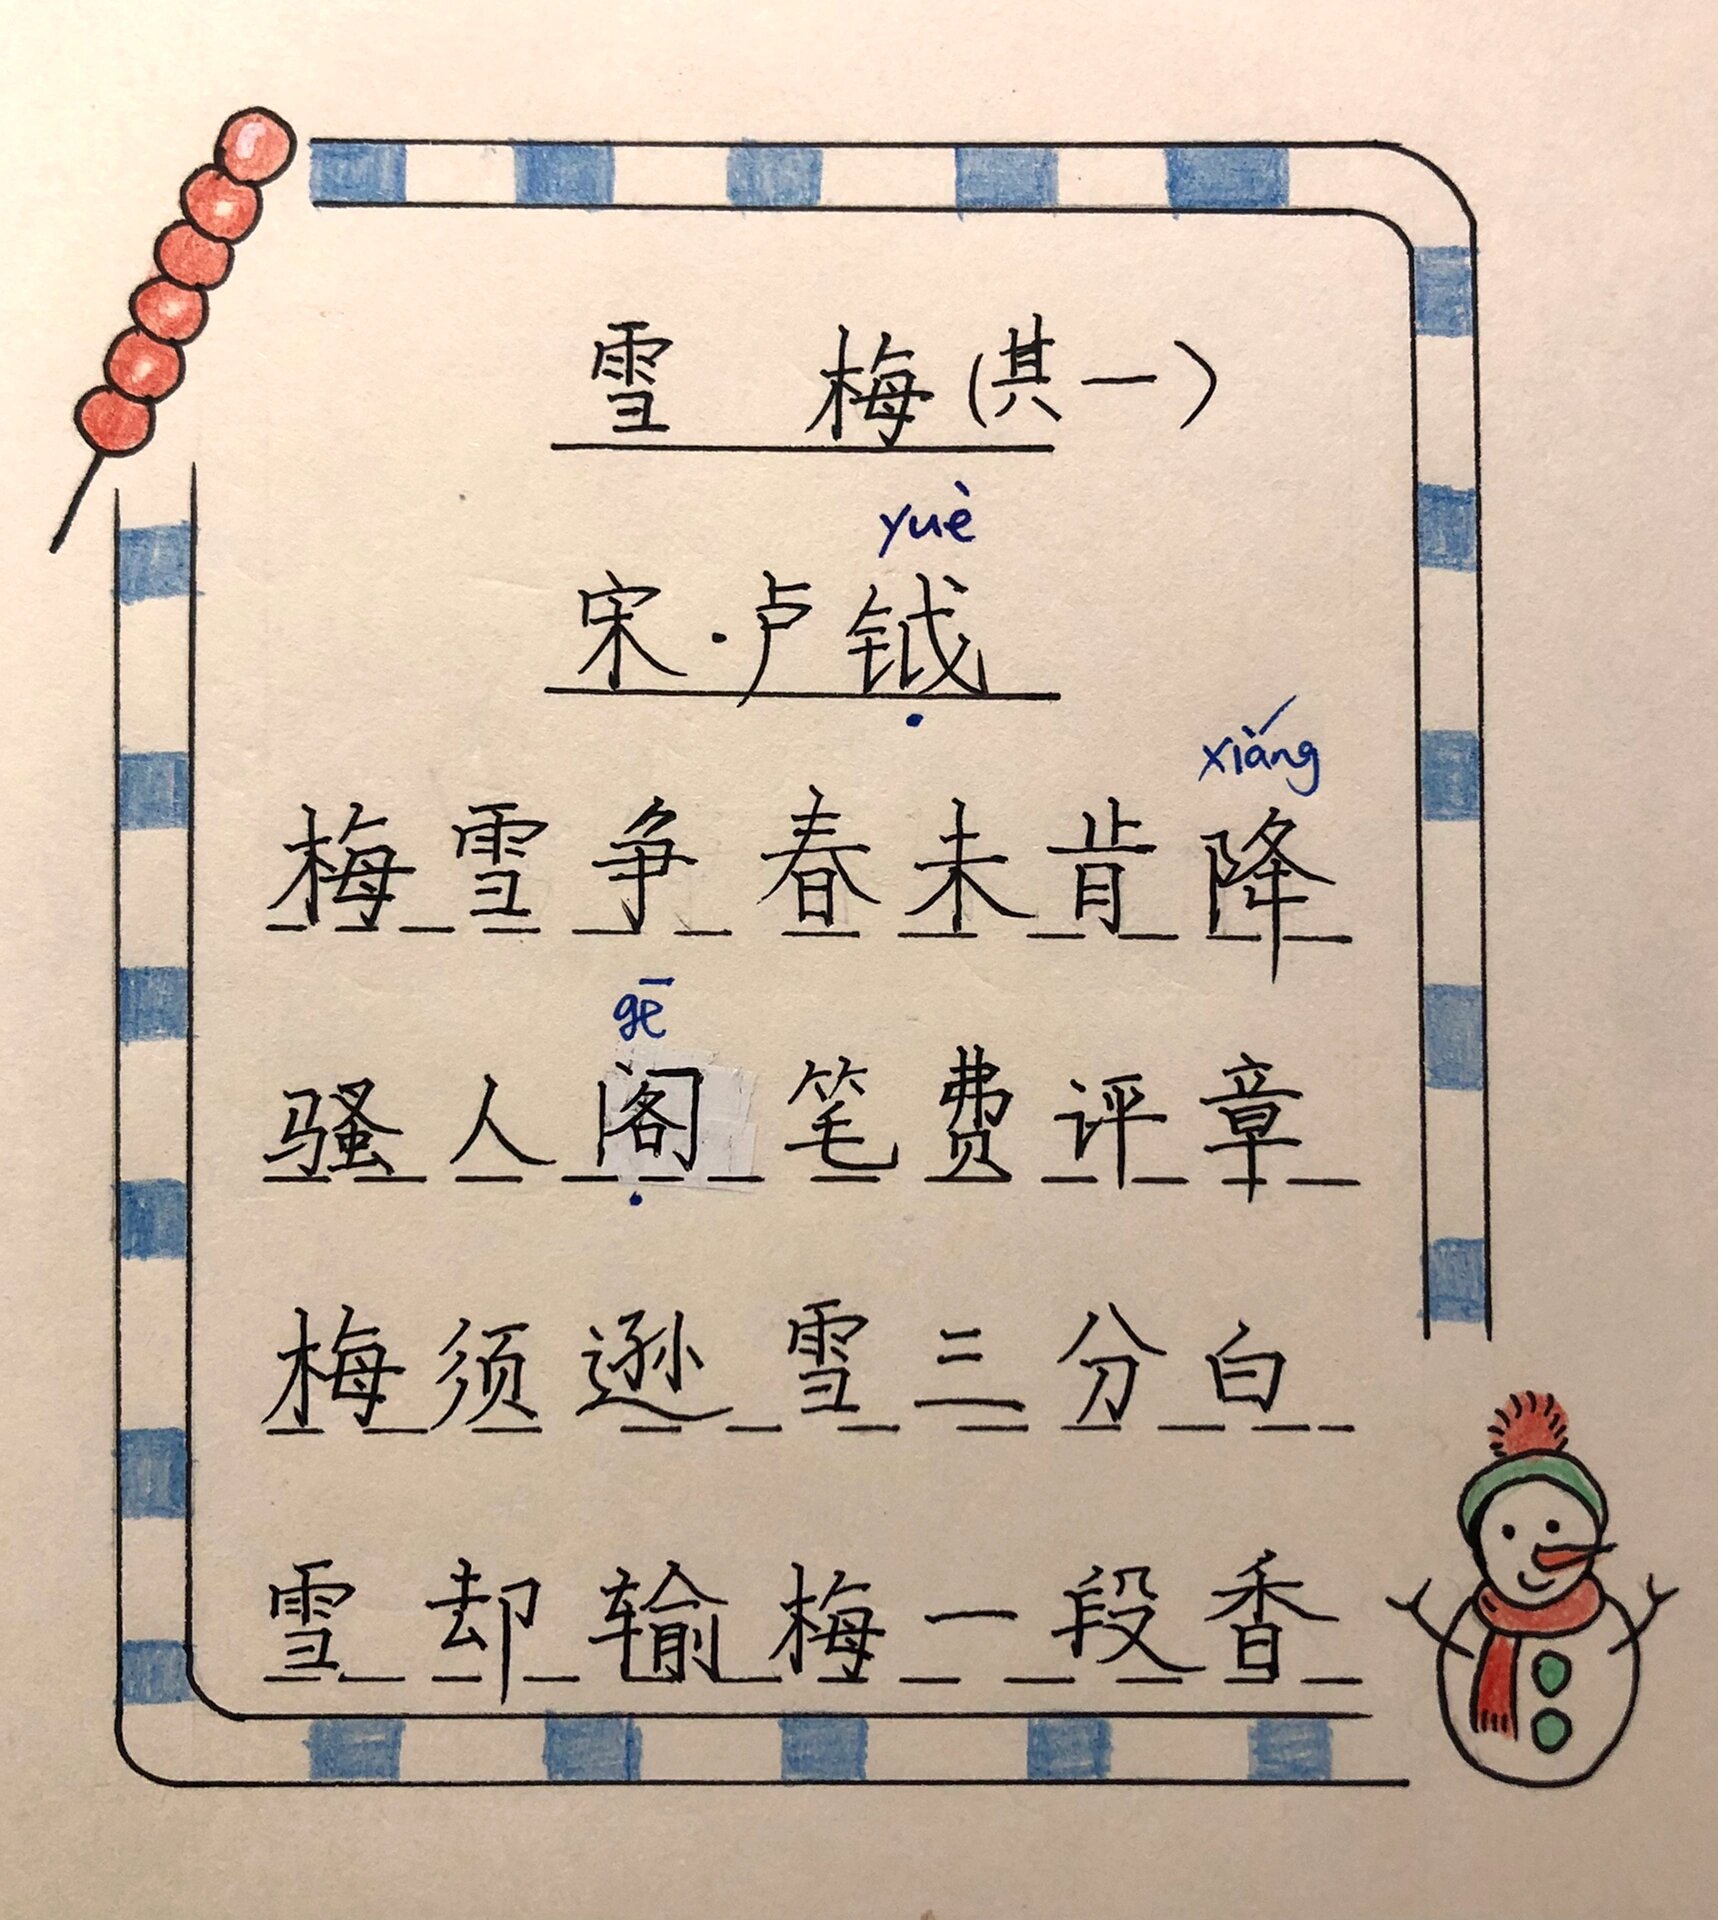 雪 梅(其一)
yuè
宋·卢钺
xiáng
梅雪争春未肯降
gē
骚人阁笔费评章
梅须逊雪三分白
雪却输梅一段香